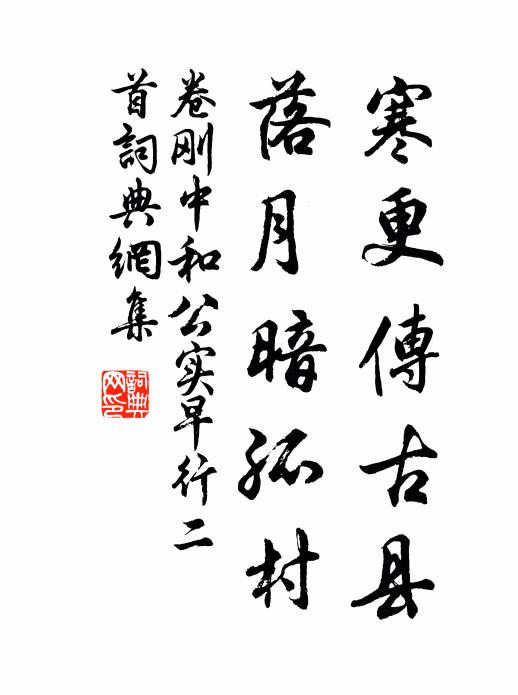 寒更傳古县
落月暗孤村
卷刚中和公实早行二
首詞典網集
詞典网印